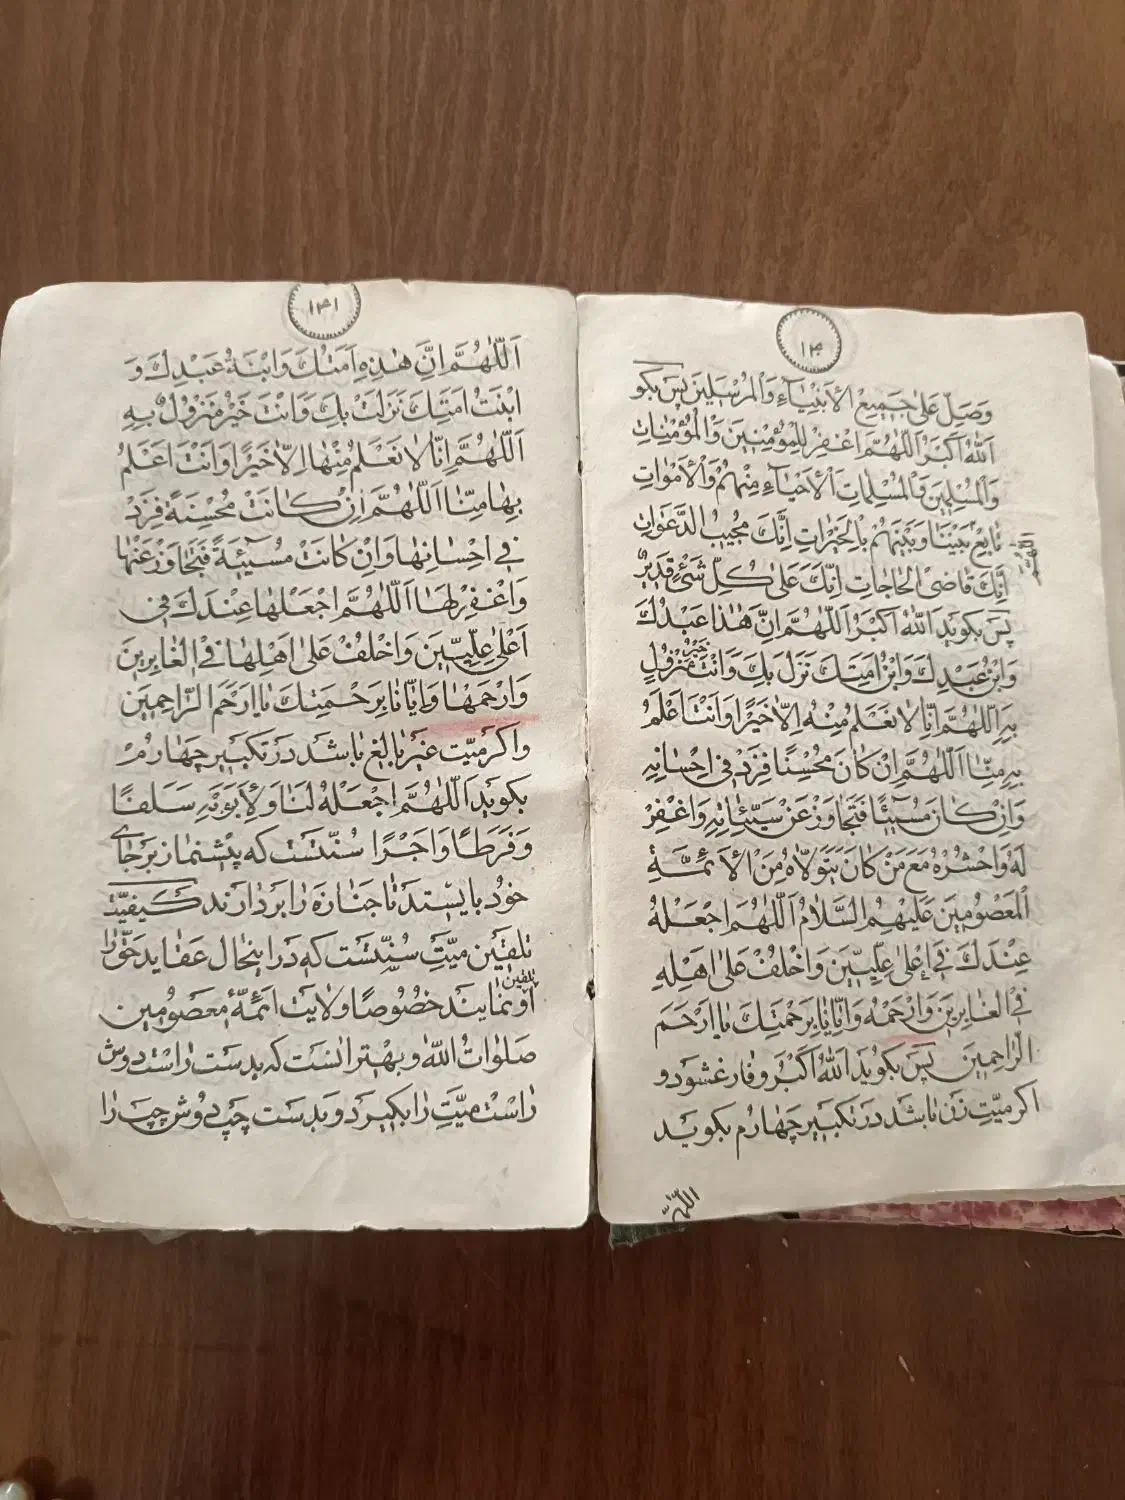 ۱۴۰
وَصَلِّ عَلىٰ جَمِيعِ الْأَنْبِيَاءِ وَالْمُرْسَلِينَ پس بکو
اَللهُ اَكْبَرُ اَللّٰهُمَّ اغْفِرْ لِلْمُؤْمِنِينَ وَالْمُؤْمِنَاتِ
وَالْمُسْلِمِينَ وَالْمُسْلِمَاتِ اَلْأَحْيَاءِ مِنْهُمْ وَالْأَمْوَاتِ
تَابِعْ بَيْنَنَا وَبَيْنَهُمْ بِالْخَيْرَاتِ اِنَّكَ مُجِيبُ الدَّعَوَاتِ
اِنَّكَ قَاضِى الْحَاجَاتِ اِنَّكَ عَلىٰ كُلِّ شَىْءٍ قَدِيرٌ
پس بکوید اَللهُ اَكْبَرُ اَللّٰهُمَّ اِنَّ هٰذَا عَبْدُكَ
وَابْنُ عَبْدِكَ وَابْنُ اَمَتِكَ نَزَلَ بِكَ وَاَنْتَ خَيْرُ مَنْزُولٍ
بِهِ اَللّٰهُمَّ اِنَّا لَا نَعْلَمُ مِنْهُ اِلَّا خَيْرًا وَاَنْتَ اَعْلَمُ
بِهِ مِنَّا اَللّٰهُمَّ اِنْ كَانَ مُحْسِنًا فَزِدْ فِى اِحْسَانِهِ
وَاِنْ كَانَ مُسِيئًا فَتَجَاوَزْ عَنْ سَيِّئَاتِهِ وَاغْفِرْ
لَهُ وَاحْشُرْهُ مَعَ مَنْ كَانَ يَتَوَلَّاهُ مِنَ الْأَئِمَّةِ
الْمَعْصُومِينَ عَلَيْهِمُ السَّلَامُ اَللّٰهُمَّ اجْعَلْهُ
عِنْدَكَ فِى اَعْلىٰ عِلِّيِّينَ وَاخْلُفْ عَلىٰ اَهْلِهِ
فِى الْغَابِرِينَ وَارْحَمْهُ وَاِيَّانَا بِرَحْمَتِكَ يَا اَرْحَمَ
الرَّاحِمِينَ پس بکوید اَللهُ اَكْبَرُ و فارغ شود و
اکر میّتِ زن باشد در تکبیر چهارم بکوید
اللّٰهُمَّ
۱۴۱
اَللّٰهُمَّ اِنَّ هٰذِهِ اَمَتُكَ وَابْنَةُ عَبْدِكَ وَ
ابْنَتُ اَمَتِكَ نَزَلَتْ بِكَ وَاَنْتَ خَيْرُ مَنْزُولٍ بِهِ
اَللّٰهُمَّ اِنَّا لَا نَعْلَمُ مِنْهَا اِلَّا خَيْرًا وَاَنْتَ اَعْلَمُ
بِهَا مِنَّا اَللّٰهُمَّ اِنْ كَانَتْ مُحْسِنَةً فَزِدْ
فِى اِحْسَانِهَا وَاِنْ كَانَتْ مُسِيئَةً فَتَجَاوَزْ عَنْهَا
وَاغْفِرْ لَهَا اَللّٰهُمَّ اجْعَلْهَا عِنْدَكَ فِى
اَعْلىٰ عِلِّيِّينَ وَاخْلُفْ عَلىٰ اَهْلِهَا فِى الْغَابِرِينَ
وَارْحَمْهَا وَاِيَّانَا بِرَحْمَتِكَ يَا اَرْحَمَ الرَّاحِمِينَ
و اکر میّت غیر بالغ باشد در تکبیر چهارم
بکوید اَللّٰهُمَّ اجْعَلْهُ لَنَا وَلِاَبَوَيْهِ سَلَفًا
وَفَرَطًا وَاَجْرًا سنّتست که پیشنماز بر جای
خود بایستد تا جنازه را بردارند کیفیّت
تلقین میّت سنّتست که در اینحال عقاید حقّه را
تلقین
او نمایند خصوصًا ولایت ائمّهٔ معصومین
صلوات الله و بهتر انست که بدست راست دوش
راست میّت را بکیرد و بدست چپ دوش چپ را